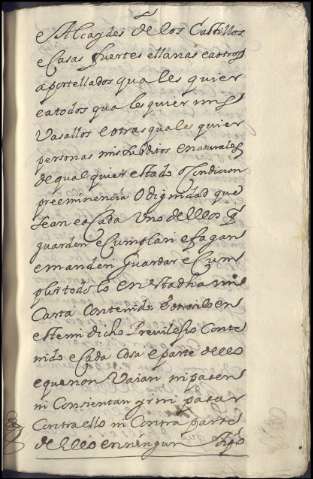 e Alcaydes de los Castillos
e Casas fuertes e llanas e a otros
aportellados quales quier
e a todos quales quier mis
Vasallos e otras quales quier
personas mis subditos e naturales
de qual quier estado o Condicion
preeminencia O dignidad que
sean e a Cada Uno de ellos q
guarden e Cumplan e fagan
e manden Guardar e Cum
plir todo lo en esta dha mi
Carta Contenido en
este mi dicho Previlesio Conte
nido e Cada Cosa e parte de ello
e que non Vaian ni pasen
ni Consientan yr ni pasar
Contra ello ni Contra parte
de ello en ningun